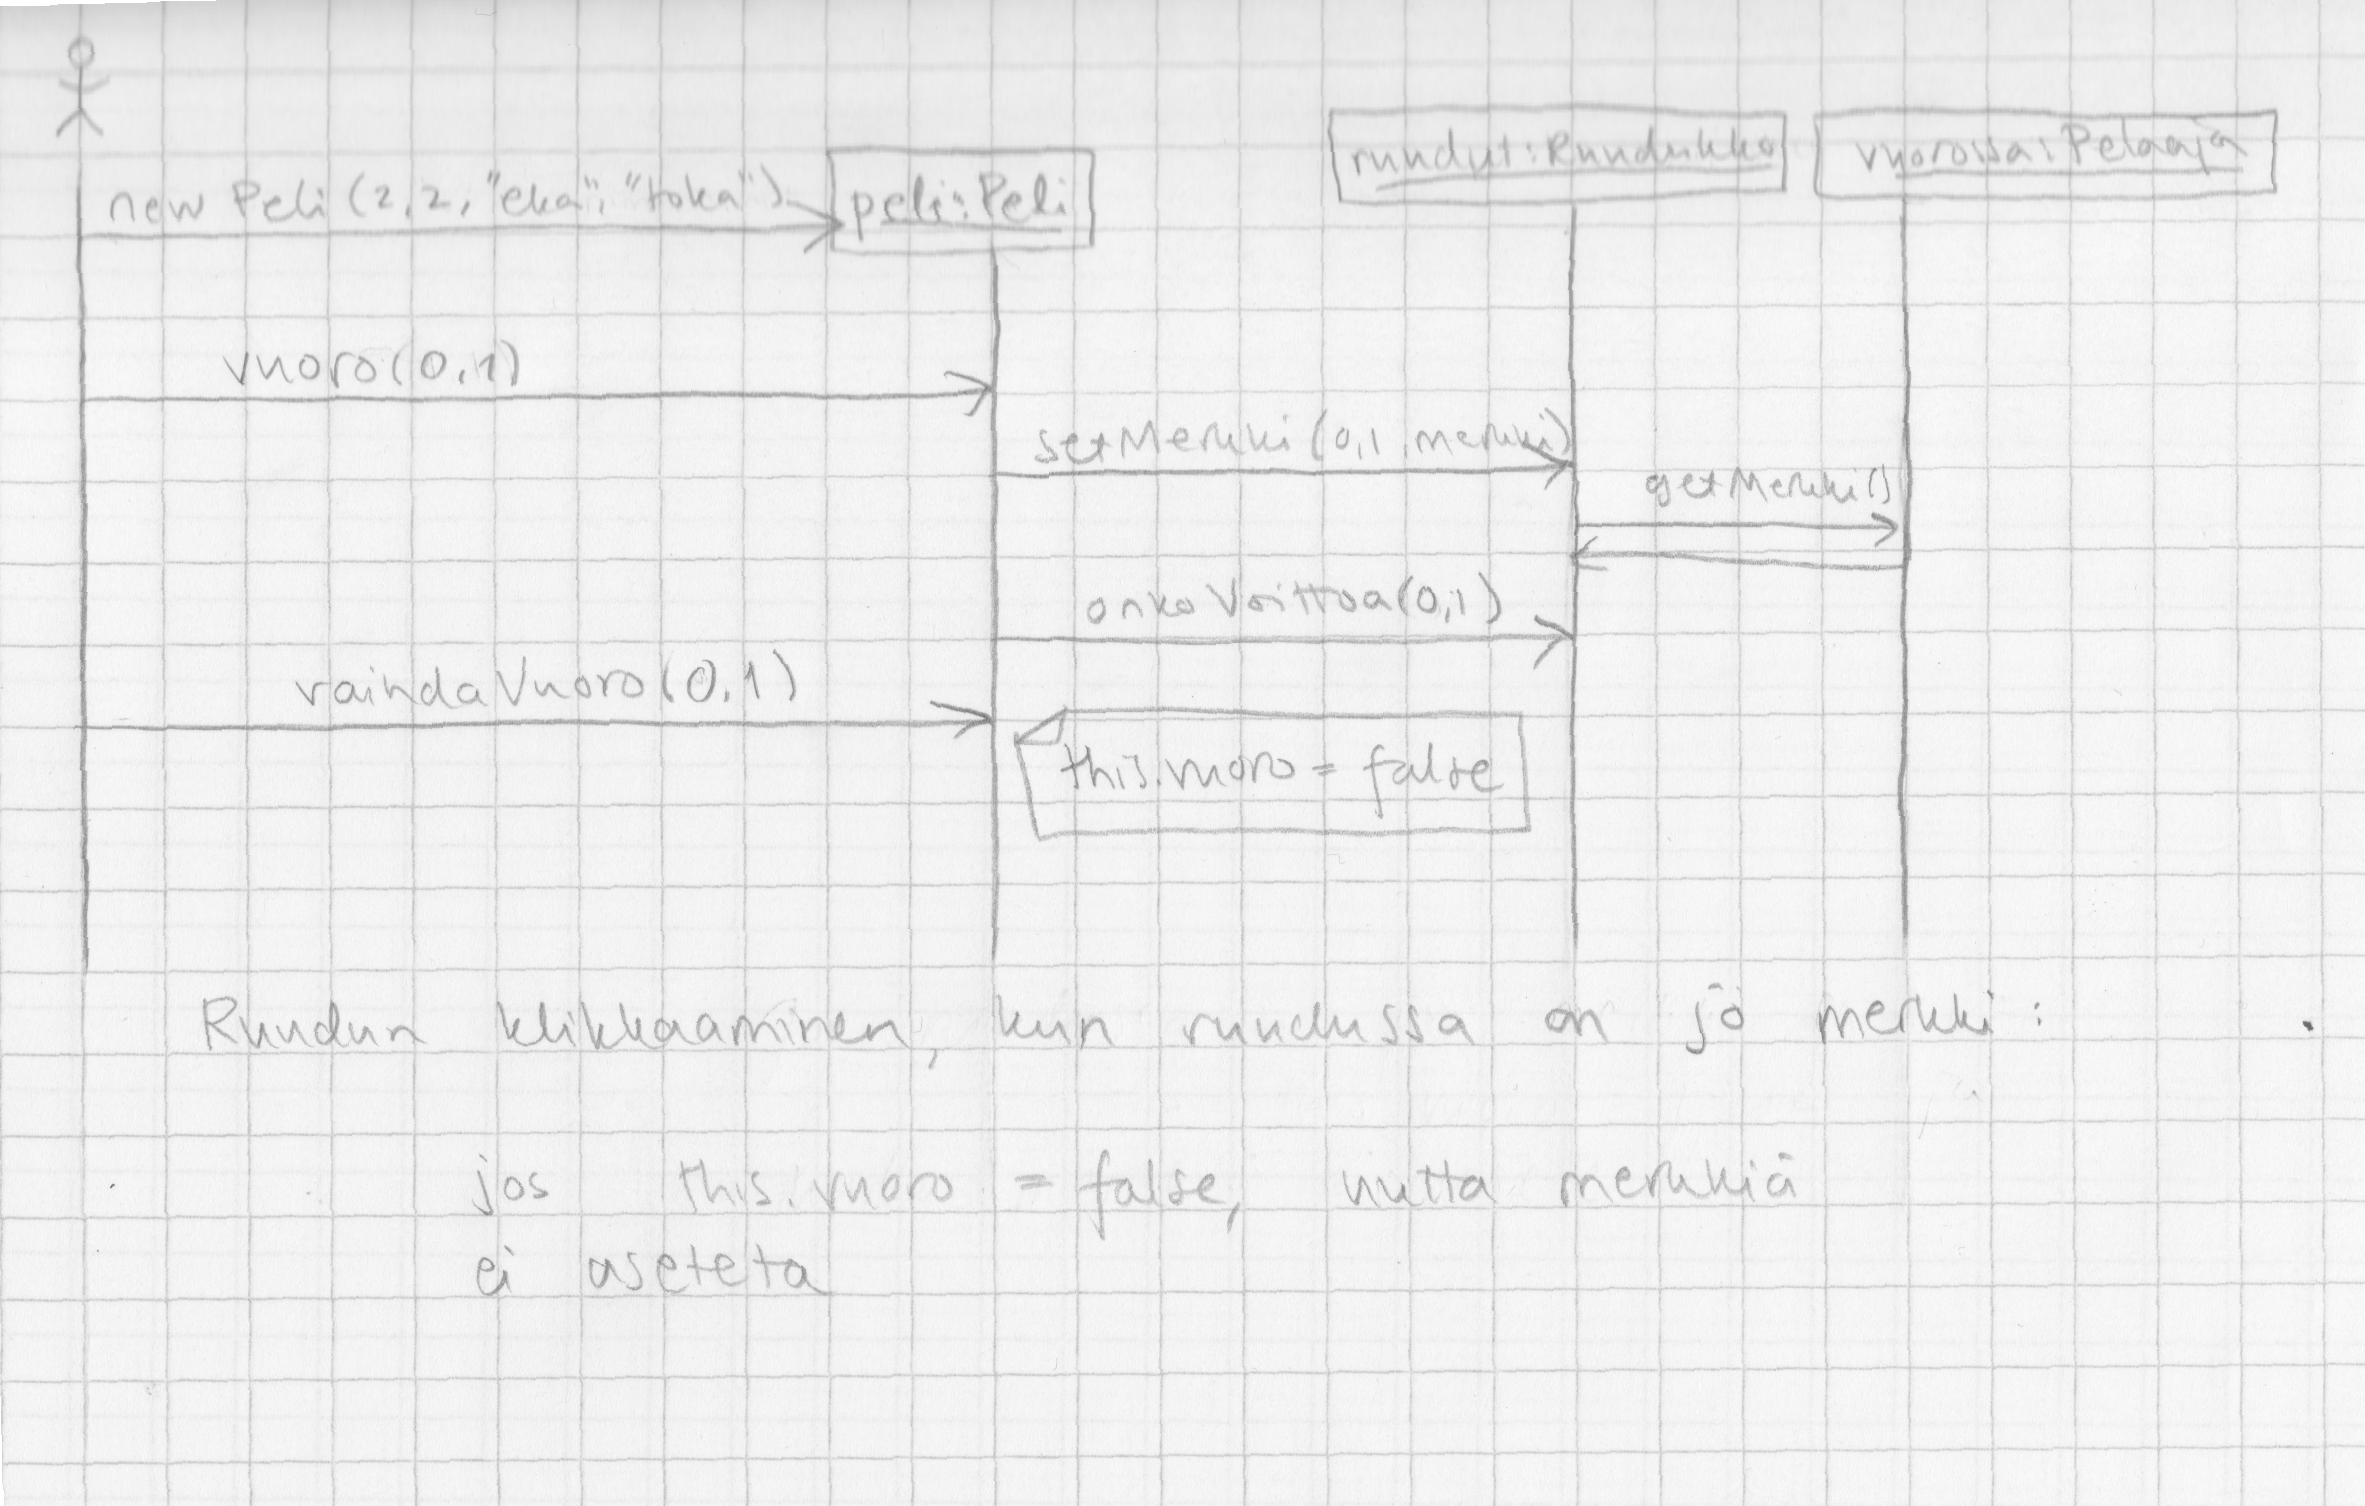 new Peli (2,2, "eka", "toka")
peli:Peli
ruudut:Ruudukko
vuorossa:Pelaaja
vuoro(0,1)
setMerkki(0,1,merkki)
getMerkki()
onkoVoittoa(0,1)
vaihdaVuoro(0,1)
this.vuoro = false
Ruudun klikkaaminen, kun ruudussa on jo merkki:
jos this.vuoro = false, uutta merkkiä
ei aseteta